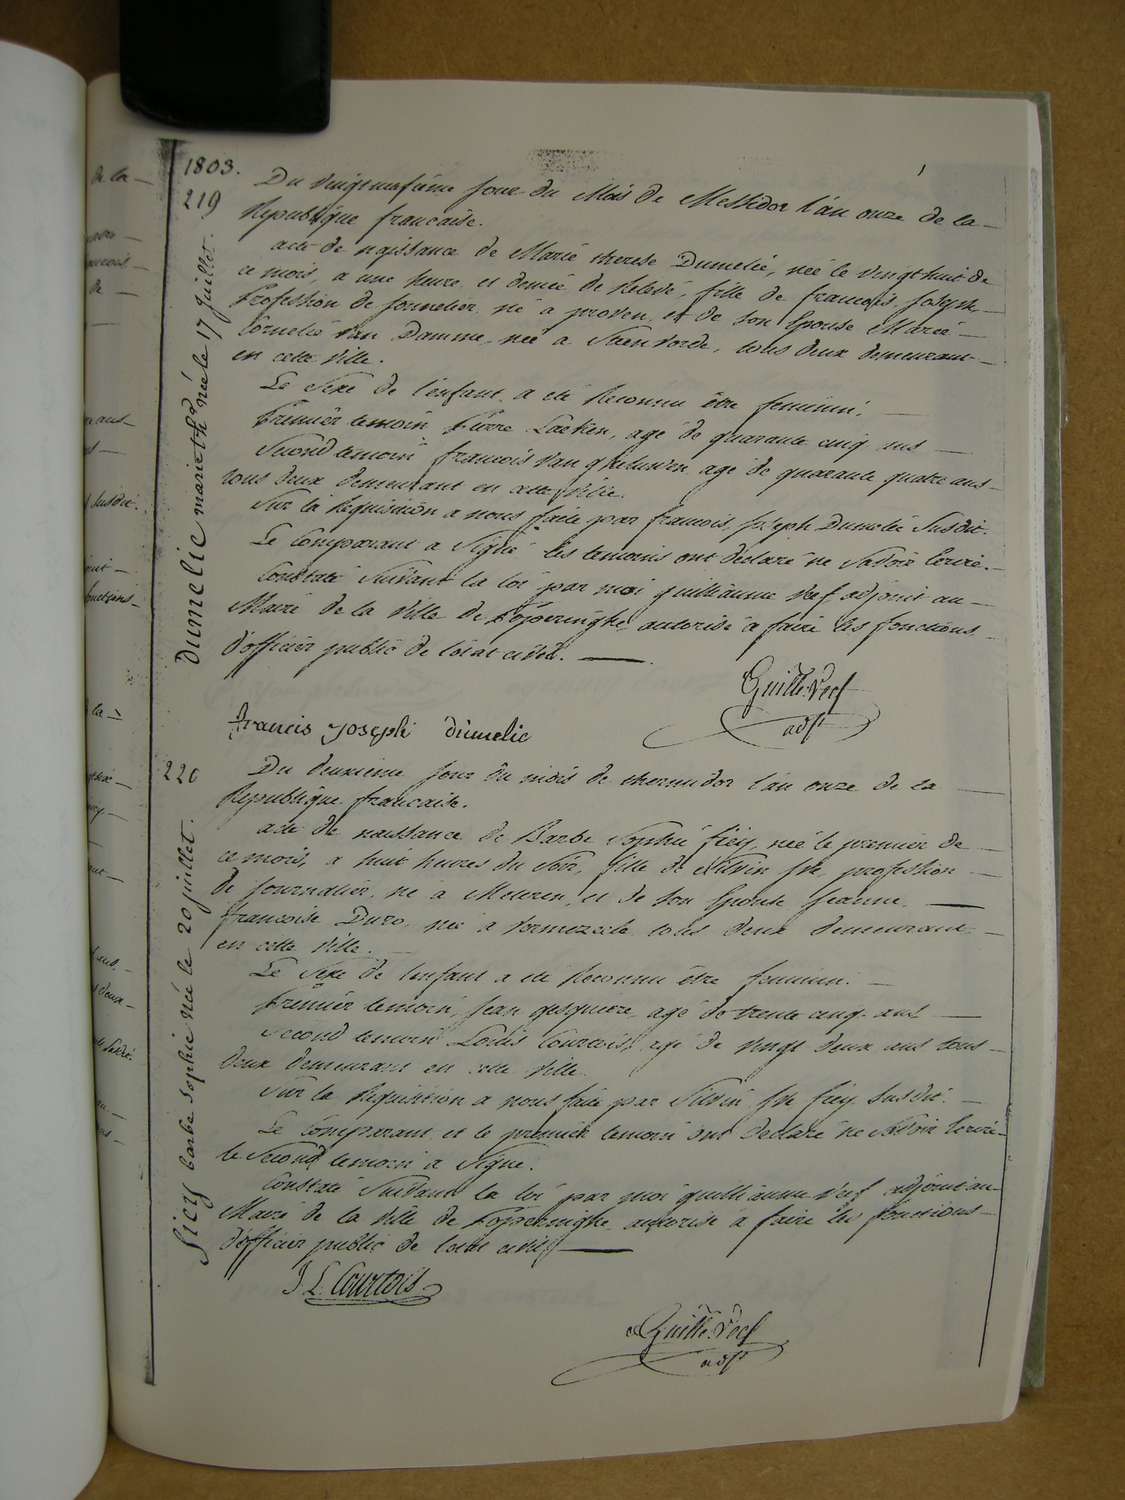 1803.
219
Du vingt neufième jour du Mois de Messidor l'an onze de la
République francaise.
acte de naissance de Marie therese Dumelie, née le vingt huit de
ce mois, a une heure et demie de Relevé, fille de francois Joseph
Profession de journalier né a proven et de son Epouse Marie
Cornelie Van Damme née a Steenvorde, tous deux demeurant
en cette Ville.
Le Sexe de l'enfant a été Reconnu être feminin.
Premier temoin Pierre agé de quarante cinq ans
Second temoin francois Van agé de quarante quatre ans
tous deux demeurant en cette Ville.
Sur la Réquisition a nous faite par francois Joseph Dumelie Susdit.
Le Comparant a Signé les temoins ont declaré ne Savoir Ecrire.
Constaté Suivant la loi par moi guilliaume adjoint au
Maire de la Ville de Poperinghe autorisé a faire les fonctions
d'officier public de l'etat civil.
Guille.
adjt
francis joseph dumelie
dumelie marie thé née le 17 juillet.
220
Du deuxième jour du mois de thermidor l'an onze de la
République francaise.
acte de naissance de Barbe Sophie fiey, née le premier de
ce mois, a huit heures du Soir, fille de Silvin profession
de journalier, né a Meteren, et de son Epouse Jeanne
francoise Duro, née a vormezeele tous deux demeurant
en cette Ville.
Le Sexe de l'enfant a été Reconnu être feminin.
Premier temoin, Jean gesquiere agé de trente cinq ans
Second temoin Louis Courtois, agé de vingt deux ans tous
deux demeurant en cette Ville
Sur la Réquisition a nous faite par Silvin fiey Susdit.
Le Comparant et le premier temoin ont declaré ne Savoir Ecrire
le Second temoin a Signé.
Constaté Suivant la loi par moi guilliaume adjoint au
Maire de la Ville de Poperinghe autorisé a faire les fonctions
d'officier public de l'etat civil
J L. Courtois
Guille.
adjt
barbe sophie née le 20 juillet.